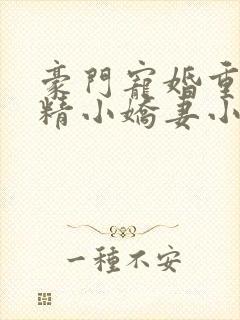 豪門寵婚重
精小嬌妻小
一種不安